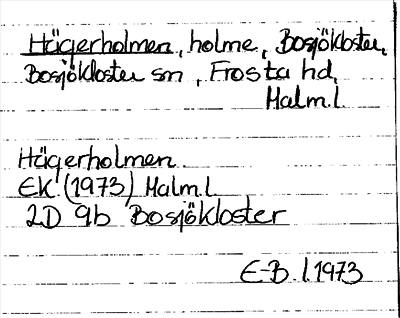 Hägerholmen, holme, Bosjökloster,
Bosjökloster sn, Frosta hd,
Malm.l.
Hägerholmen
EK (1973) Malm.l.
2D 9b Bosjökloster
E-B.l.1973